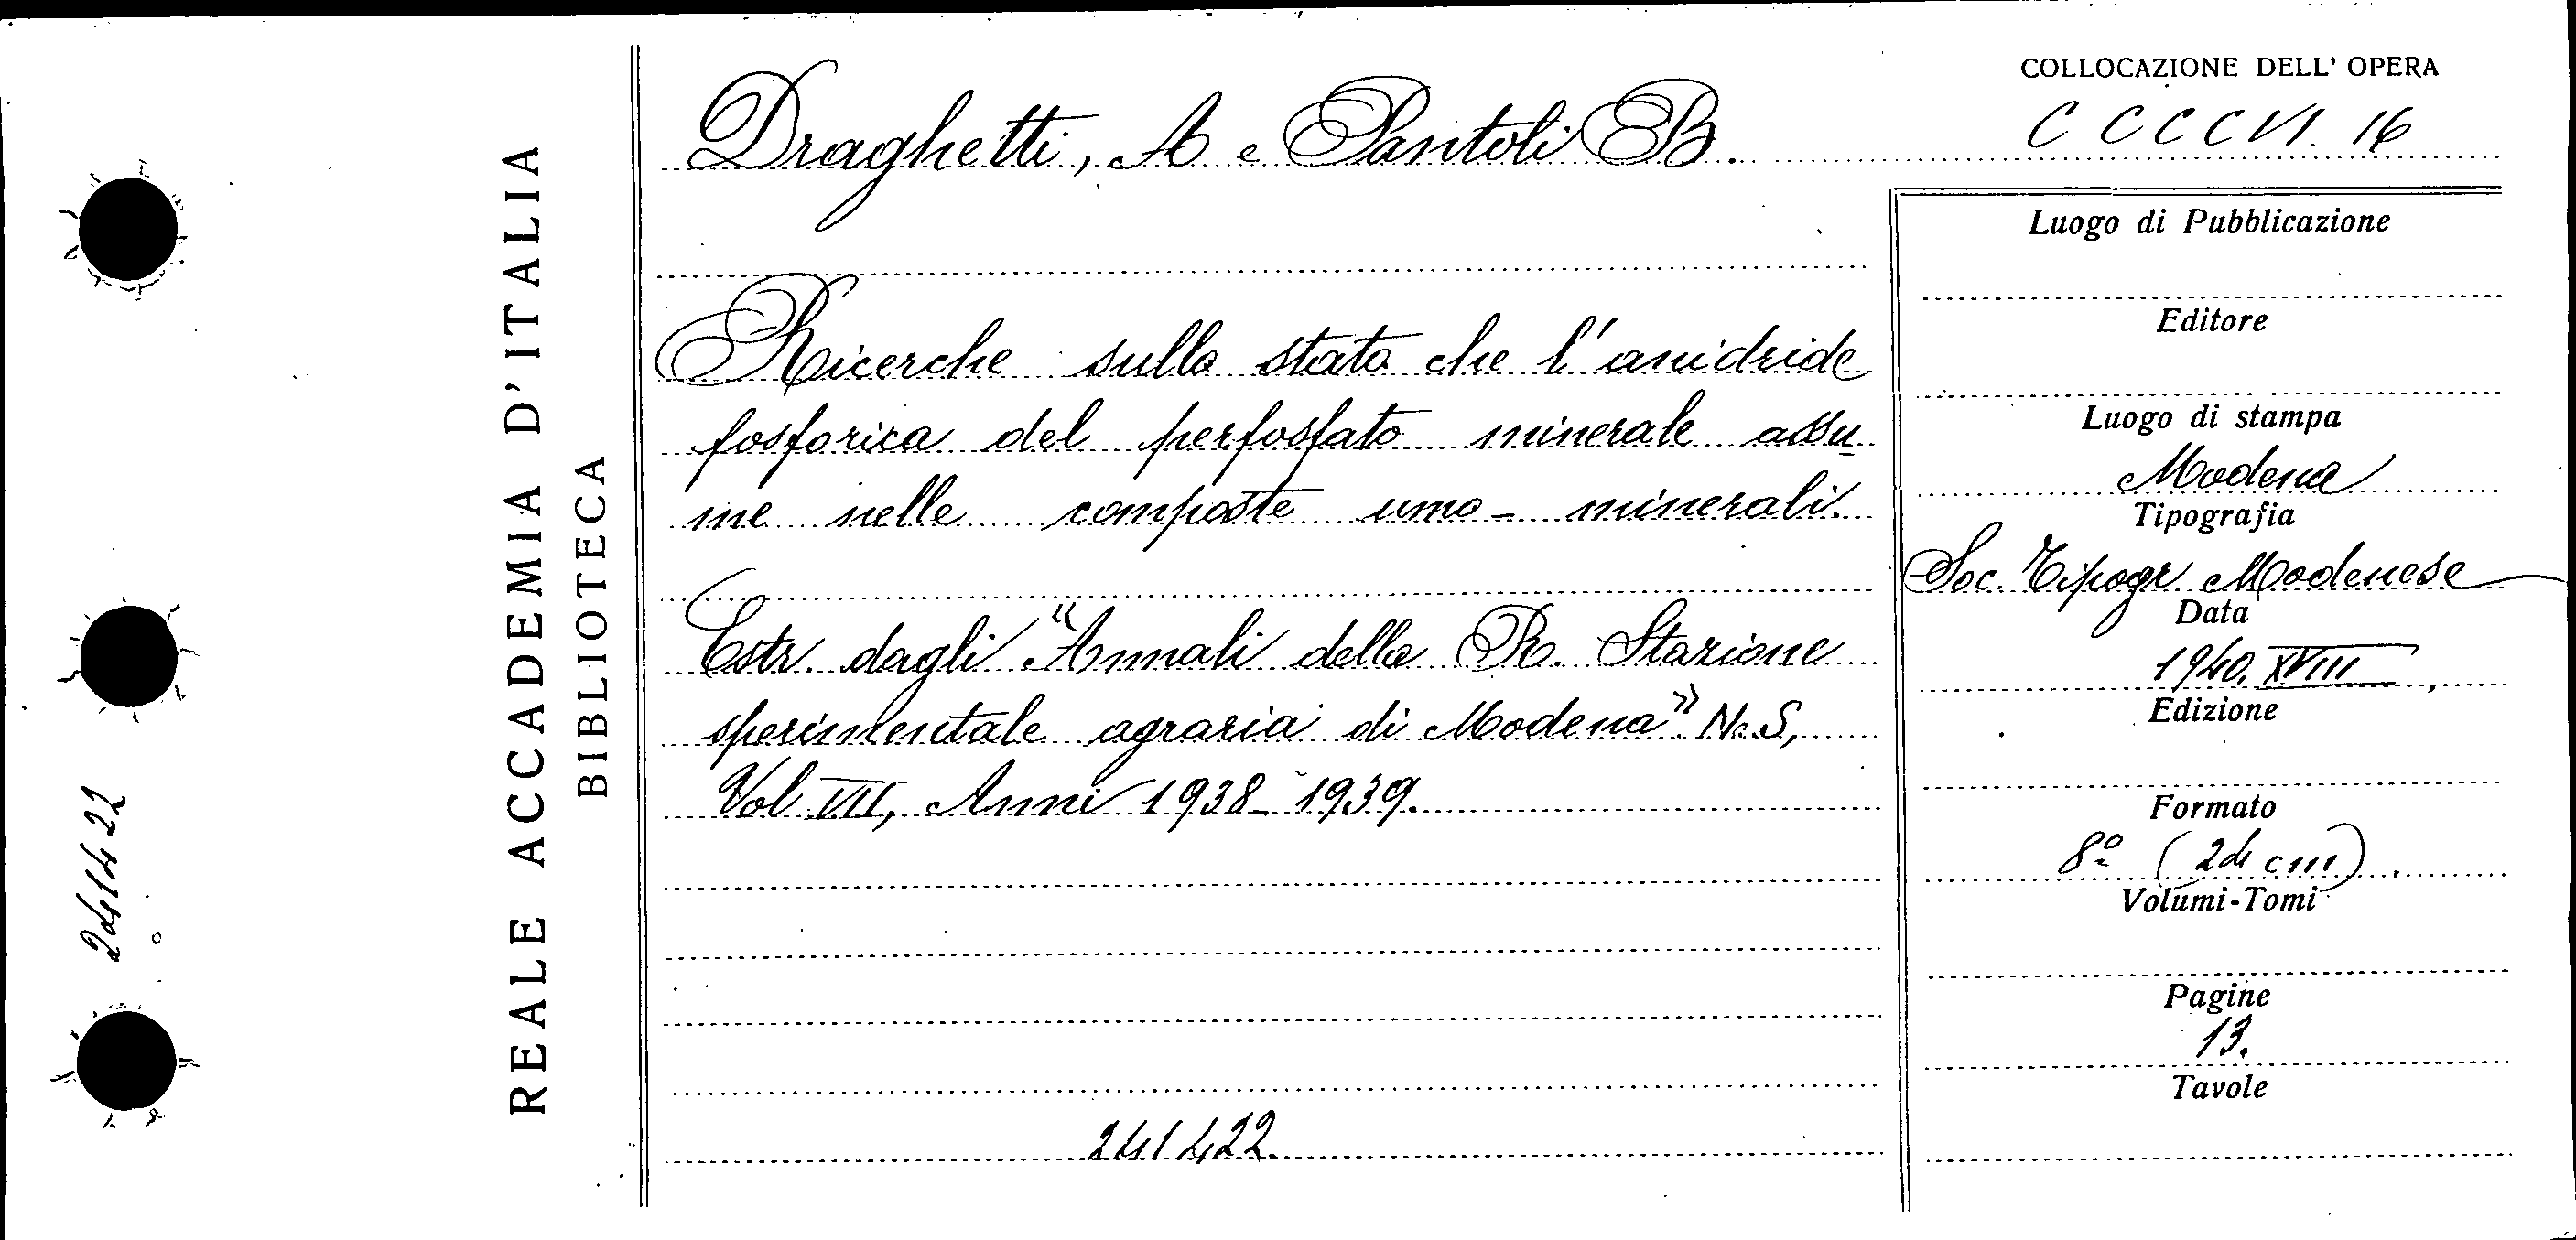 241422
REALE ACCADEMIA D'ITALIA
BIBLIOTECA
Draghetti, A e Pantoli B.
Ricerche sullo stato che l'anidride
fosforica del perfosfato minerale assu-
me nelle composte umo-minerali.
Estr. dagli "Annali della R. Stazione
sperimentale agraria di Modena" N.S,
Vol VII, Anni 1938-1939.
241422.
COLLOCAZIONE DELL' OPERA
CCCCVI. 16
Luogo di Pubblicazione
Editore
Luogo di stampa
Modena
Tipografia
Soc. Tipogr Modenese
Data
1940. XVIII
Edizione
Formato
8º (24 cm).
Volumi-Tomi
Pagine
13.
Tavole